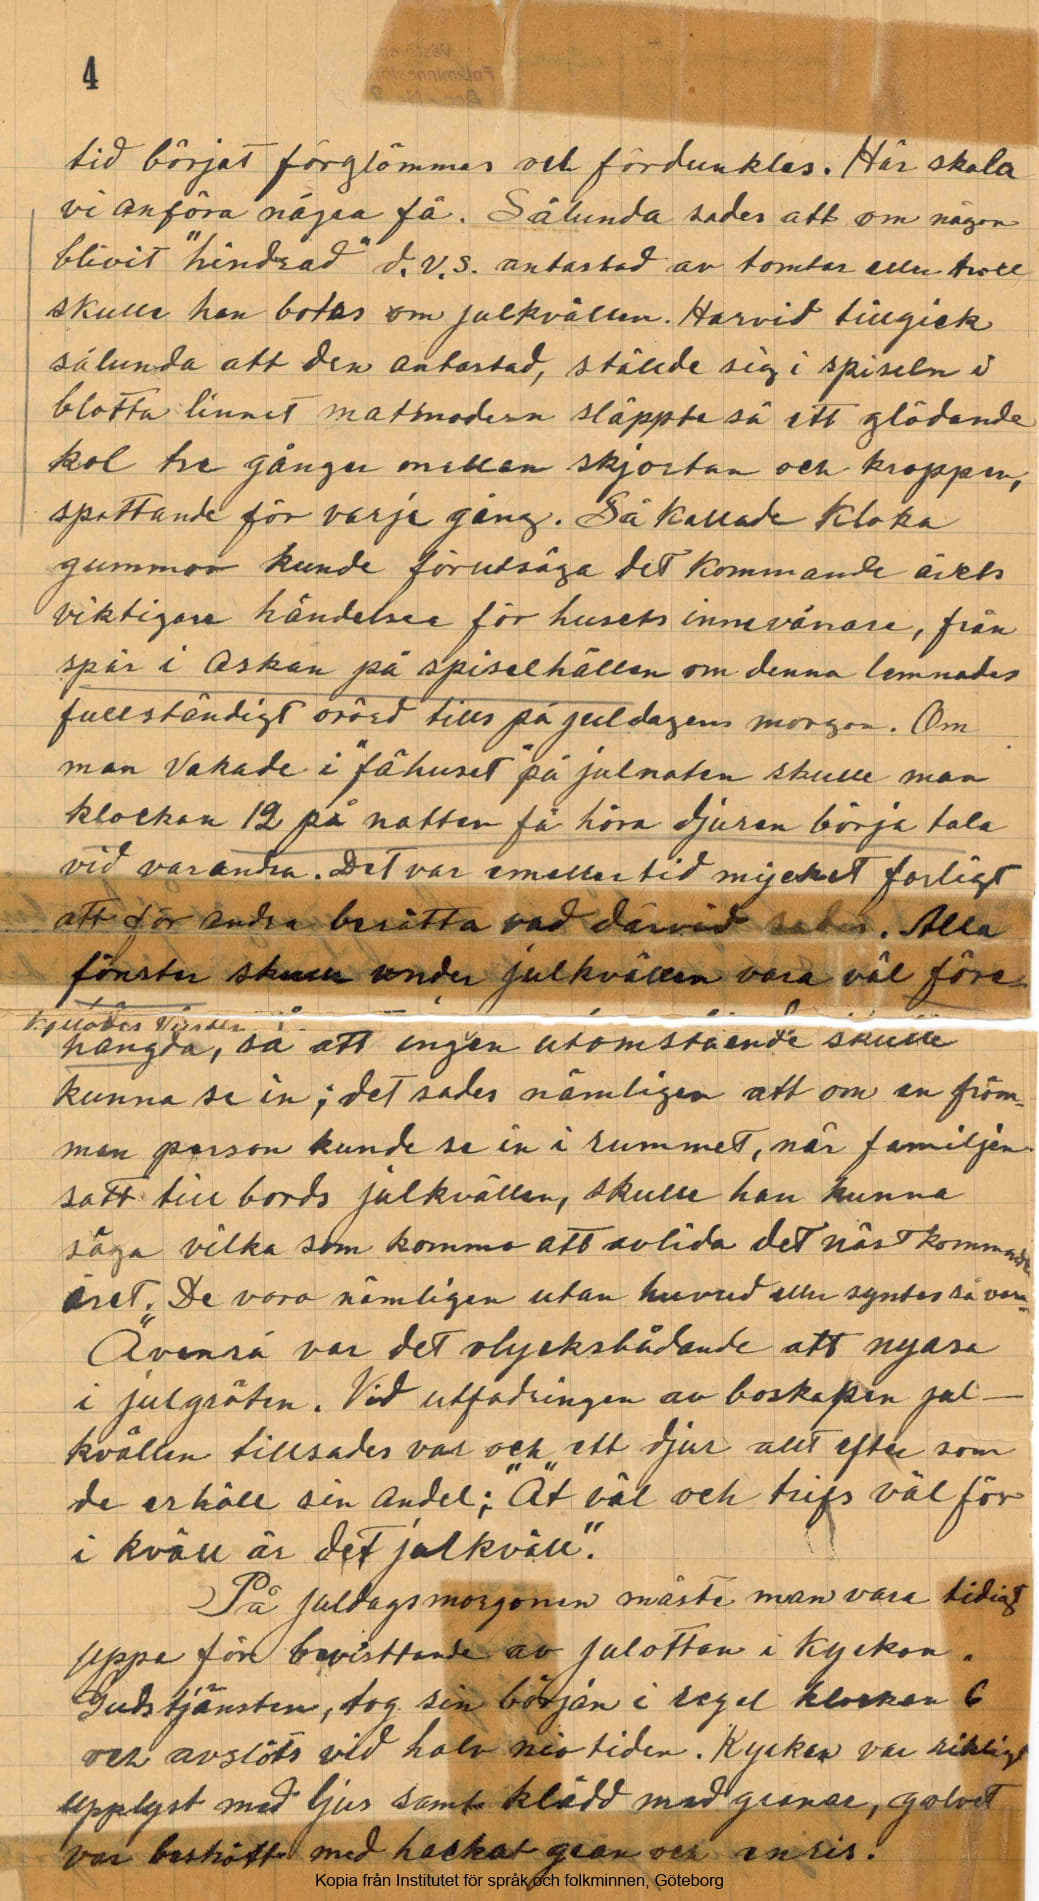 4
tid börjat förglömmas och fördunklas. Här skola
vi anföra några få. Sålunda sades att om någon
blivit "hindrad" d.v.s. antastad av tomtar eller troll
skulle han botas om julkvällen. Harvid tillgick
sålunda att den antastad, ställde sig i spiseln i
blotta linnet matmodern släppte så ett glödande
kol tre gånger mellan skjortan och kroppen,
spottande för varje gång. Så kallade Kloka
gummor kunde förutsäga det kommande årets
viktigare händelser för husets innevånare, från
spår i askan på spiselhällen om denna lemnades
fullständigt orörd tills på juldagens morgon. Om
man vakade i "fähuset" på julnaten skulle man
klockan 12 på natten få höra djuren börja tala
vid varandra. Det var emellertid mycket farligt
att för andra berätta vad därvid sades. Alla
fönster skulle under julkvällen vara väl före-
hängda, så att ingen utomstående skulle
kunna se in; det sades nämligen att om en främ-
man person kunde se in i rummet, när familjen
satt till bords julkvällen, skulle han kunna
säga vilka som komma att avlida det nästkommande
året. De voro nämligen utan huvud eller syntes så vara.
Ävenså var det olycksbådande att nyasa
i julgröten. Vid utfodringen av boskapen jul-
kvällen tillsades var och ett djur allt efter som
de erhåll sin andel; "Ät väl och trifs väl för
i kväll är det julkväll".
På juldagsmorgonen måste man vara tidigt
uppe för bevisttande av julottan i Kyrkan.
Gudstjänsten, tog sin början i regel klockan 6
och avslöts vid halv nio tiden. Kyrkan var rikligt
upplyst med ljus samt klädd med granar, golvet
var bestrött med hackat gran och enris.
Kopia från Institutet för språk och folkminnen, Göteborg